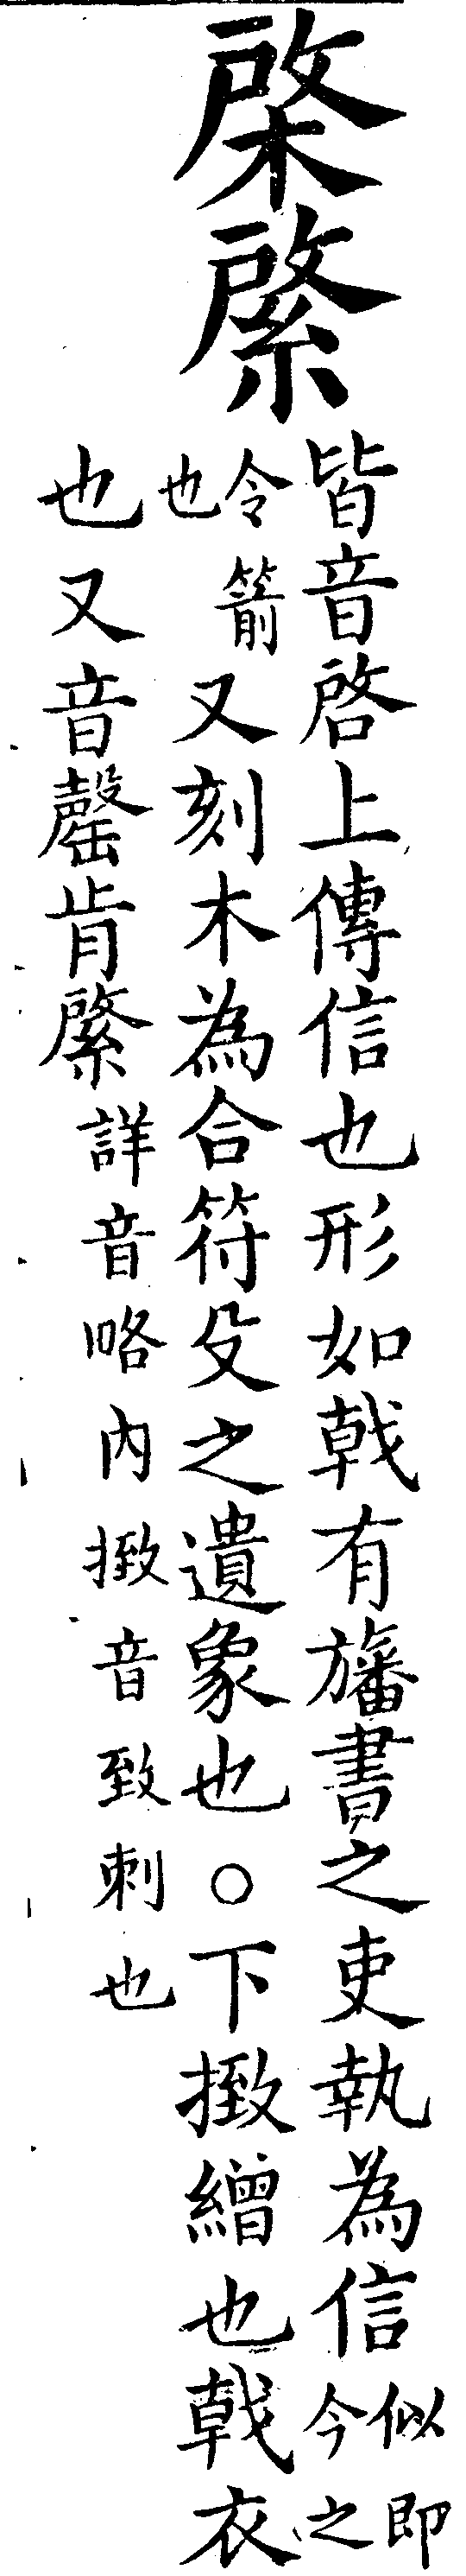 棨綮
皆音啓上傳信也形如戟有旛書之吏執為信似即今之
令箭也又刻木為合符殳之遺象也○下㨖繒也戟衣
也又音罄肯綮詳音略內㨖音致刺也